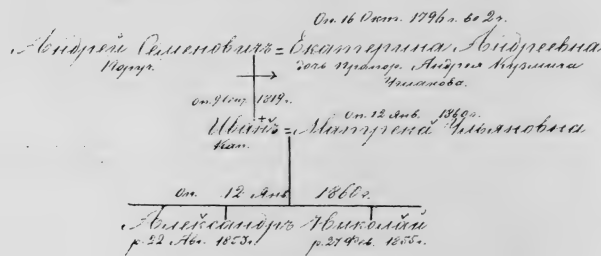 Оп. 16 Окт. 1796 г. во 2 ч.
Андрей Семеновичъ = Екатерина Андреевна
Поруч. дочь прапор. Андрея Кузмича
Чилакова.
оп. 1819 г.
оп. 12 Янв. 1860 г.
Иванъ = Матрена Ульяновна
Кап.
Оп. 12 Янв 1860 г.
Александръ Николай
р. 22 Авг. 1853 г. р. 27 Фев. 1855 г.